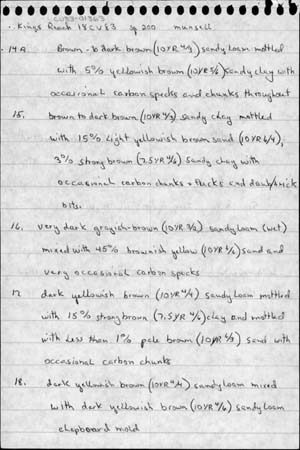 CU83-01363
Kings Reach 18CV83 sp 200 munsell
14A Brown - to dark brown (10YR 4/3) sandy loam mottled
with 5% yellowish brown (10YR 5/6) sandy clay with
occasional carbon specks and chunks throughout
15. brown to dark brown (10YR 4/3) sandy clay mottled
with 15% light yellowish brown sand (10YR 6/4),
3% strong brown (7.5YR 4/6) sandy clay with
occasional carbon chunks + flecks and daub/brick
bits.
16. very dark grayish-brown (10YR 3/2) sandy loam (wet)
mixed with 45% brownish yellow (10YR 6/6) sand and
very occasional carbon specks
17 dark yellowish brown (10YR 4/4) sandy loam mottled
with 15% strong brown (7.5YR 4/6) clay and mottled
with less than 1% pale brown (10YR 6/3) sand with
occasional carbon chunks
18. dark yellowish brown (10YR 4/4) sandy loam mixed
with dark yellowish brown (10YR 4/6) sandy loam
clapboard mold